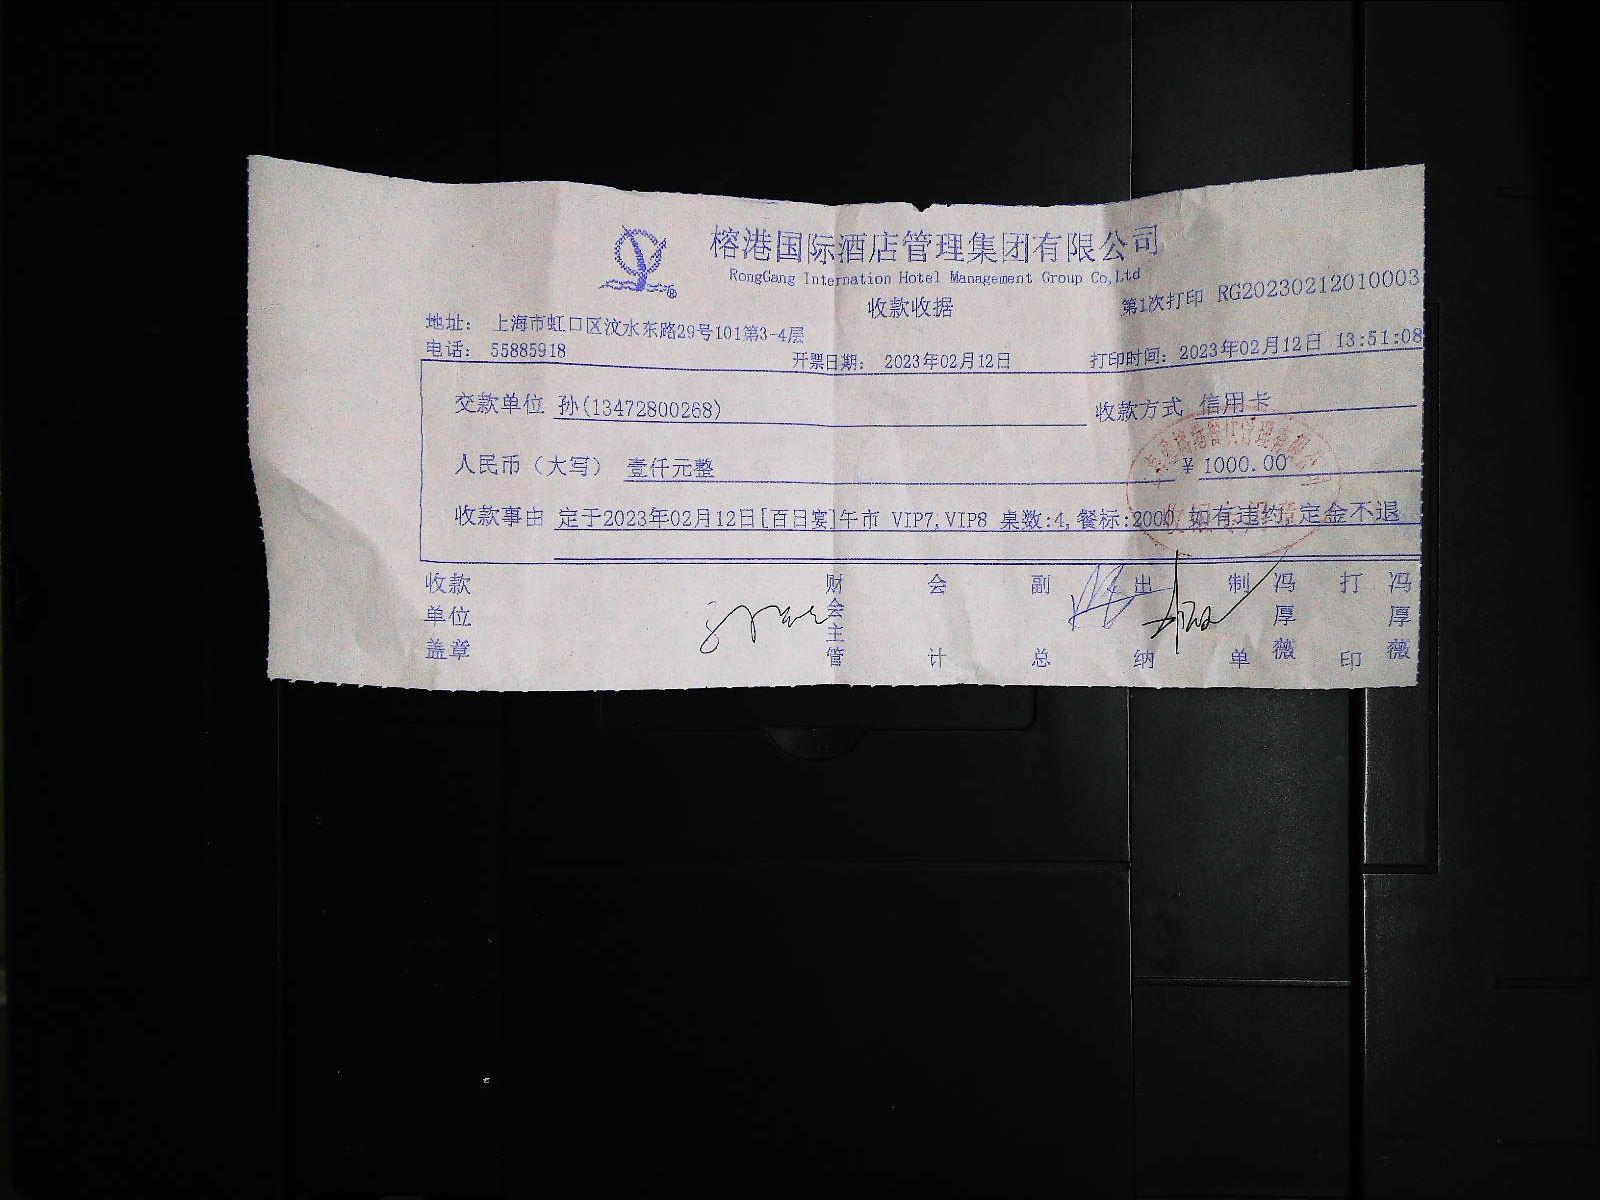 榕港国际酒店管理集团有限公司
RongGang Internation Hotel Management Group Co,Ltd
收款收据
第1次打印 RG20230212010003
地址： 上海市虹口区汶水东路29号101第3-4层
电话： 55885918
开票日期： 2023年02月12日
打印时间：2023年02月12日 13:51:08
交款单位 孙(13472800268)
收款方式 信用卡
人民币（大写） 壹仟元整
¥ 1000.00
收款事由 定于2023年02月12日[百日宴]午市 VIP7,VIP8 桌数:4,餐标:2000,如有违约,定金不退
收款单位盖章
财会主管
会计
副总
出纳
制单 冯厚薇
打印 冯厚薇